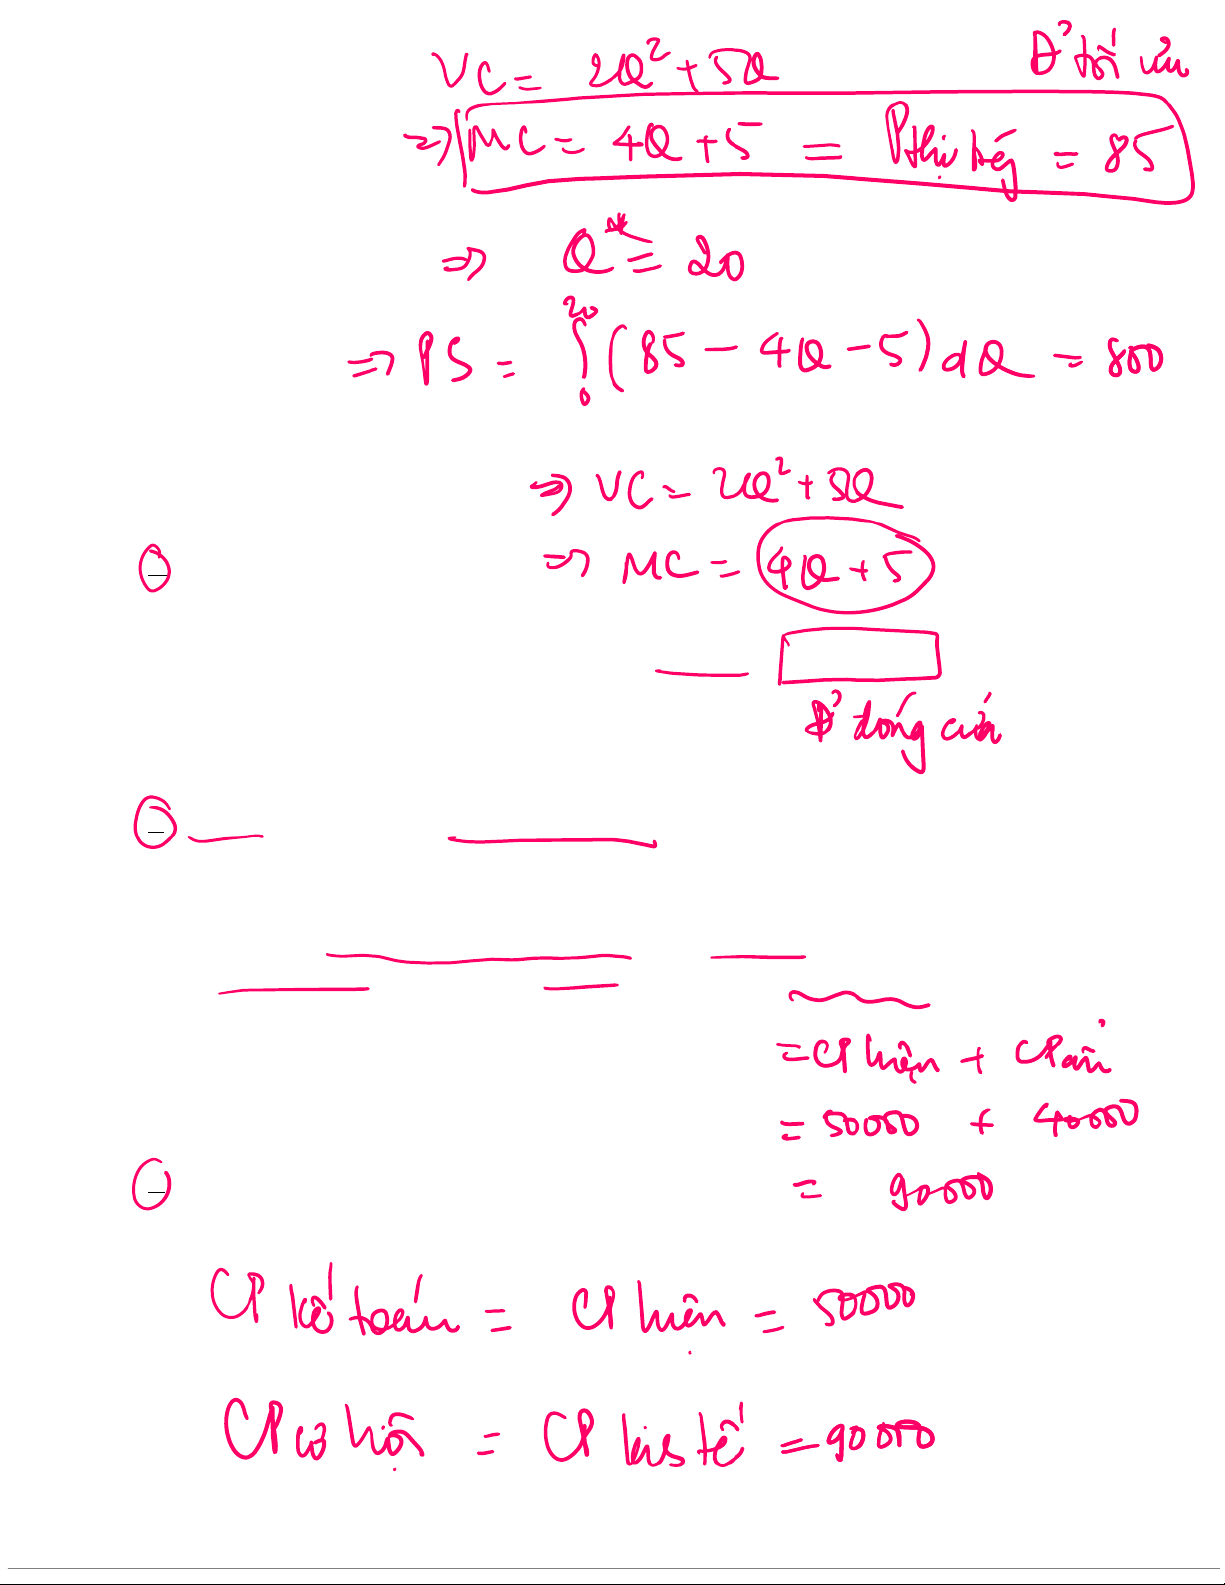 VC = 2Q² + 5Q
Đ' tối ưu
=> MC = 4Q + 5 = P thị trường = 85
=> Q* = 20
=> PS = ∫₀²⁰ (85 - 4Q - 5) dQ = 800
=> VC = 2Q² + 5Q
=> MC = 4Q + 5
Đ' đóng cửa
= CP hiện + CP ẩn
= 50000 + 40000
= 90000
CP kế toán = CP hiện = 50000
CP cơ hội = CP kinh tế = 90000